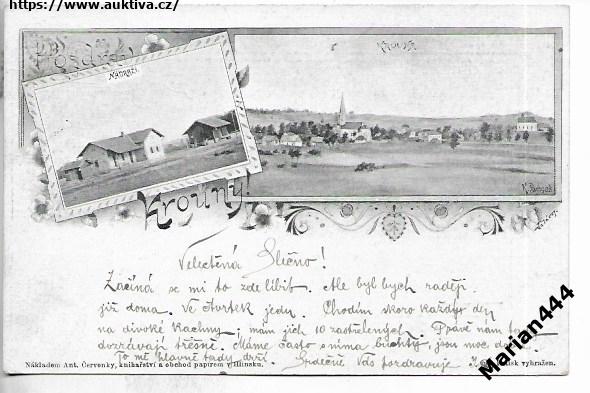 https://www.auktiva.cz/
Pozdrav z
NÁDRAŽÍ.
KROUNA.
Krouny!
Velectěná Slečno!
Začíná se mi to zde líbit. Ale byl bych raději
již doma. Ve čtvrtek jedu. Chodím skoro každý den
na divoké kachny, mám jich 10 zastřelených. Právě nám tu
dozrávají třešně. Máme často s nima buchty, jsou moc do
to mě hlavně tady drží. Srdečně Vás pozdravuje
Nákladem Ant. Červenky, knihařství a obchod papírem v Hlinsku.
tisk vyhražen.
Marian444